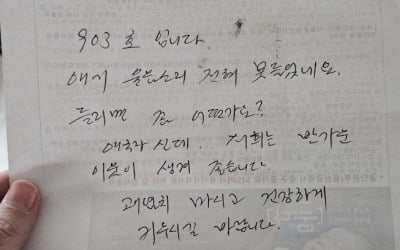 903호 입니다.
애기 울음소리 전혀 못들었네요.
들리면 좀 어떤가요?
애국자 신데. 저희는 반가운
이웃이 생겨 좋습니다.
괘념치 마시고 건강하게
키우시길 바랍니다.